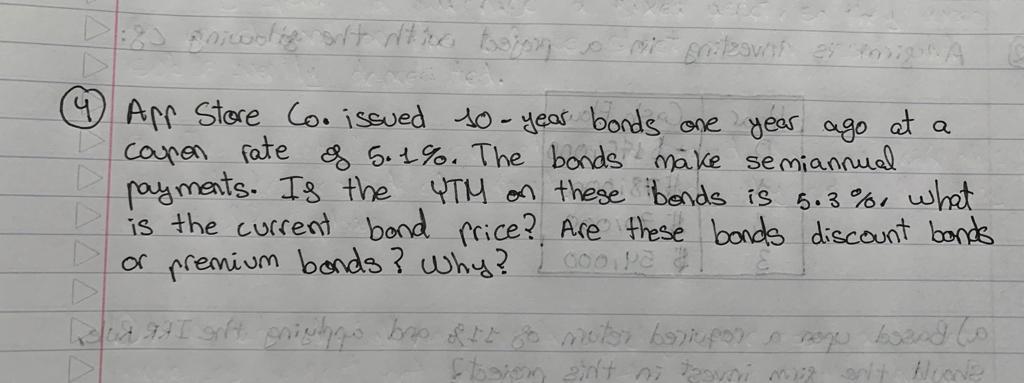 4 App Store Co. issued 10-year bonds one year ago at a
coupon rate of 5.1%. The bonds make semiannual
payments. If the YTM on these bonds is 5.3%, what
is the current bond price? Are these bonds discount bonds
or premium bonds? Why?